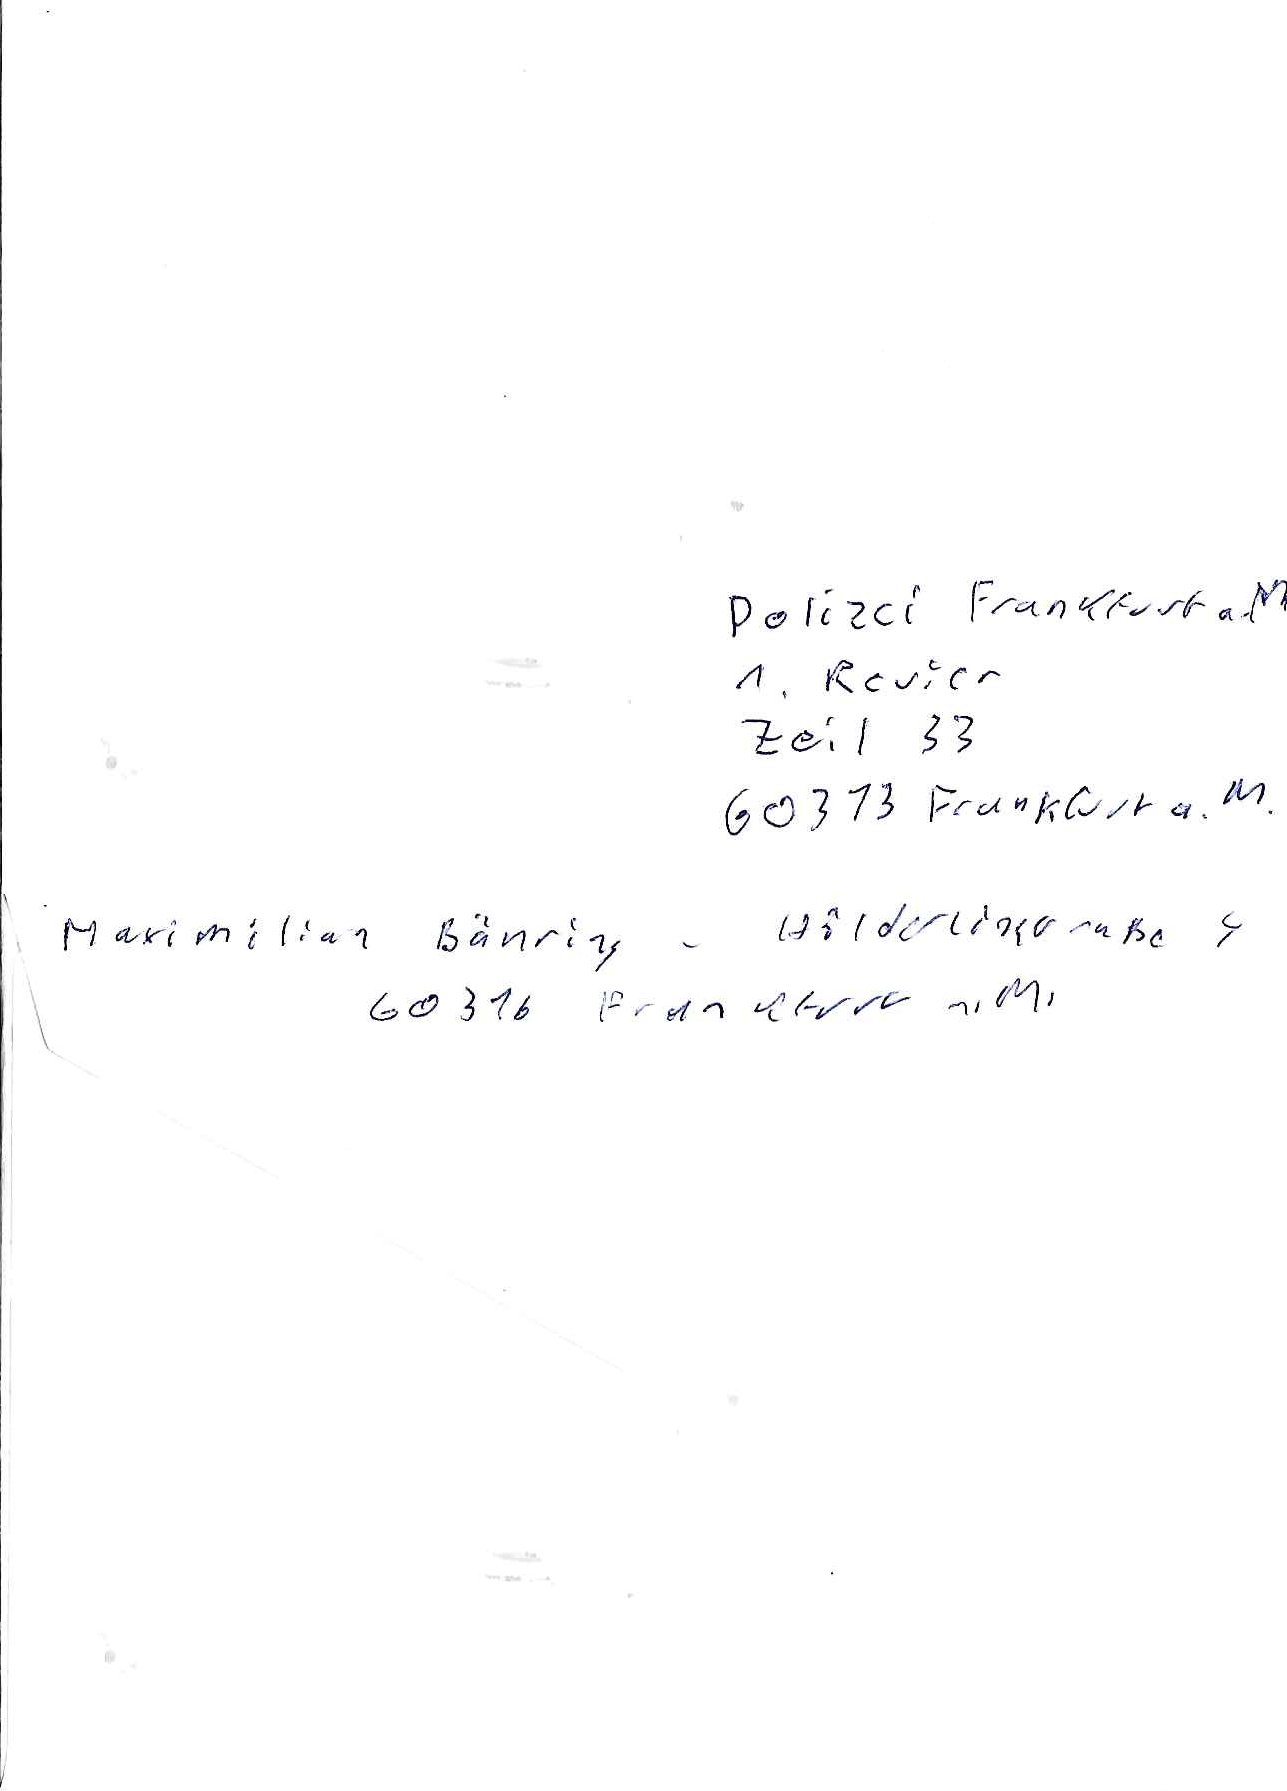 Polizei Frankfurt a.M
1. Revier
Zeil 33
60313 Frankfurt a. M.
Maximilian Bähring - Hölderlinstraße 4
60316 Frankfurt a. M.